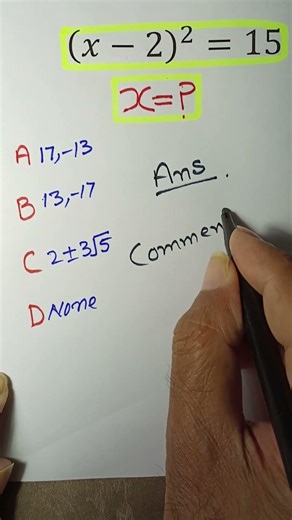 (x − 2)² = 15
x=?
A 17,-13
B 13,-17
C 2±3√5
D None
Ans.
Commen